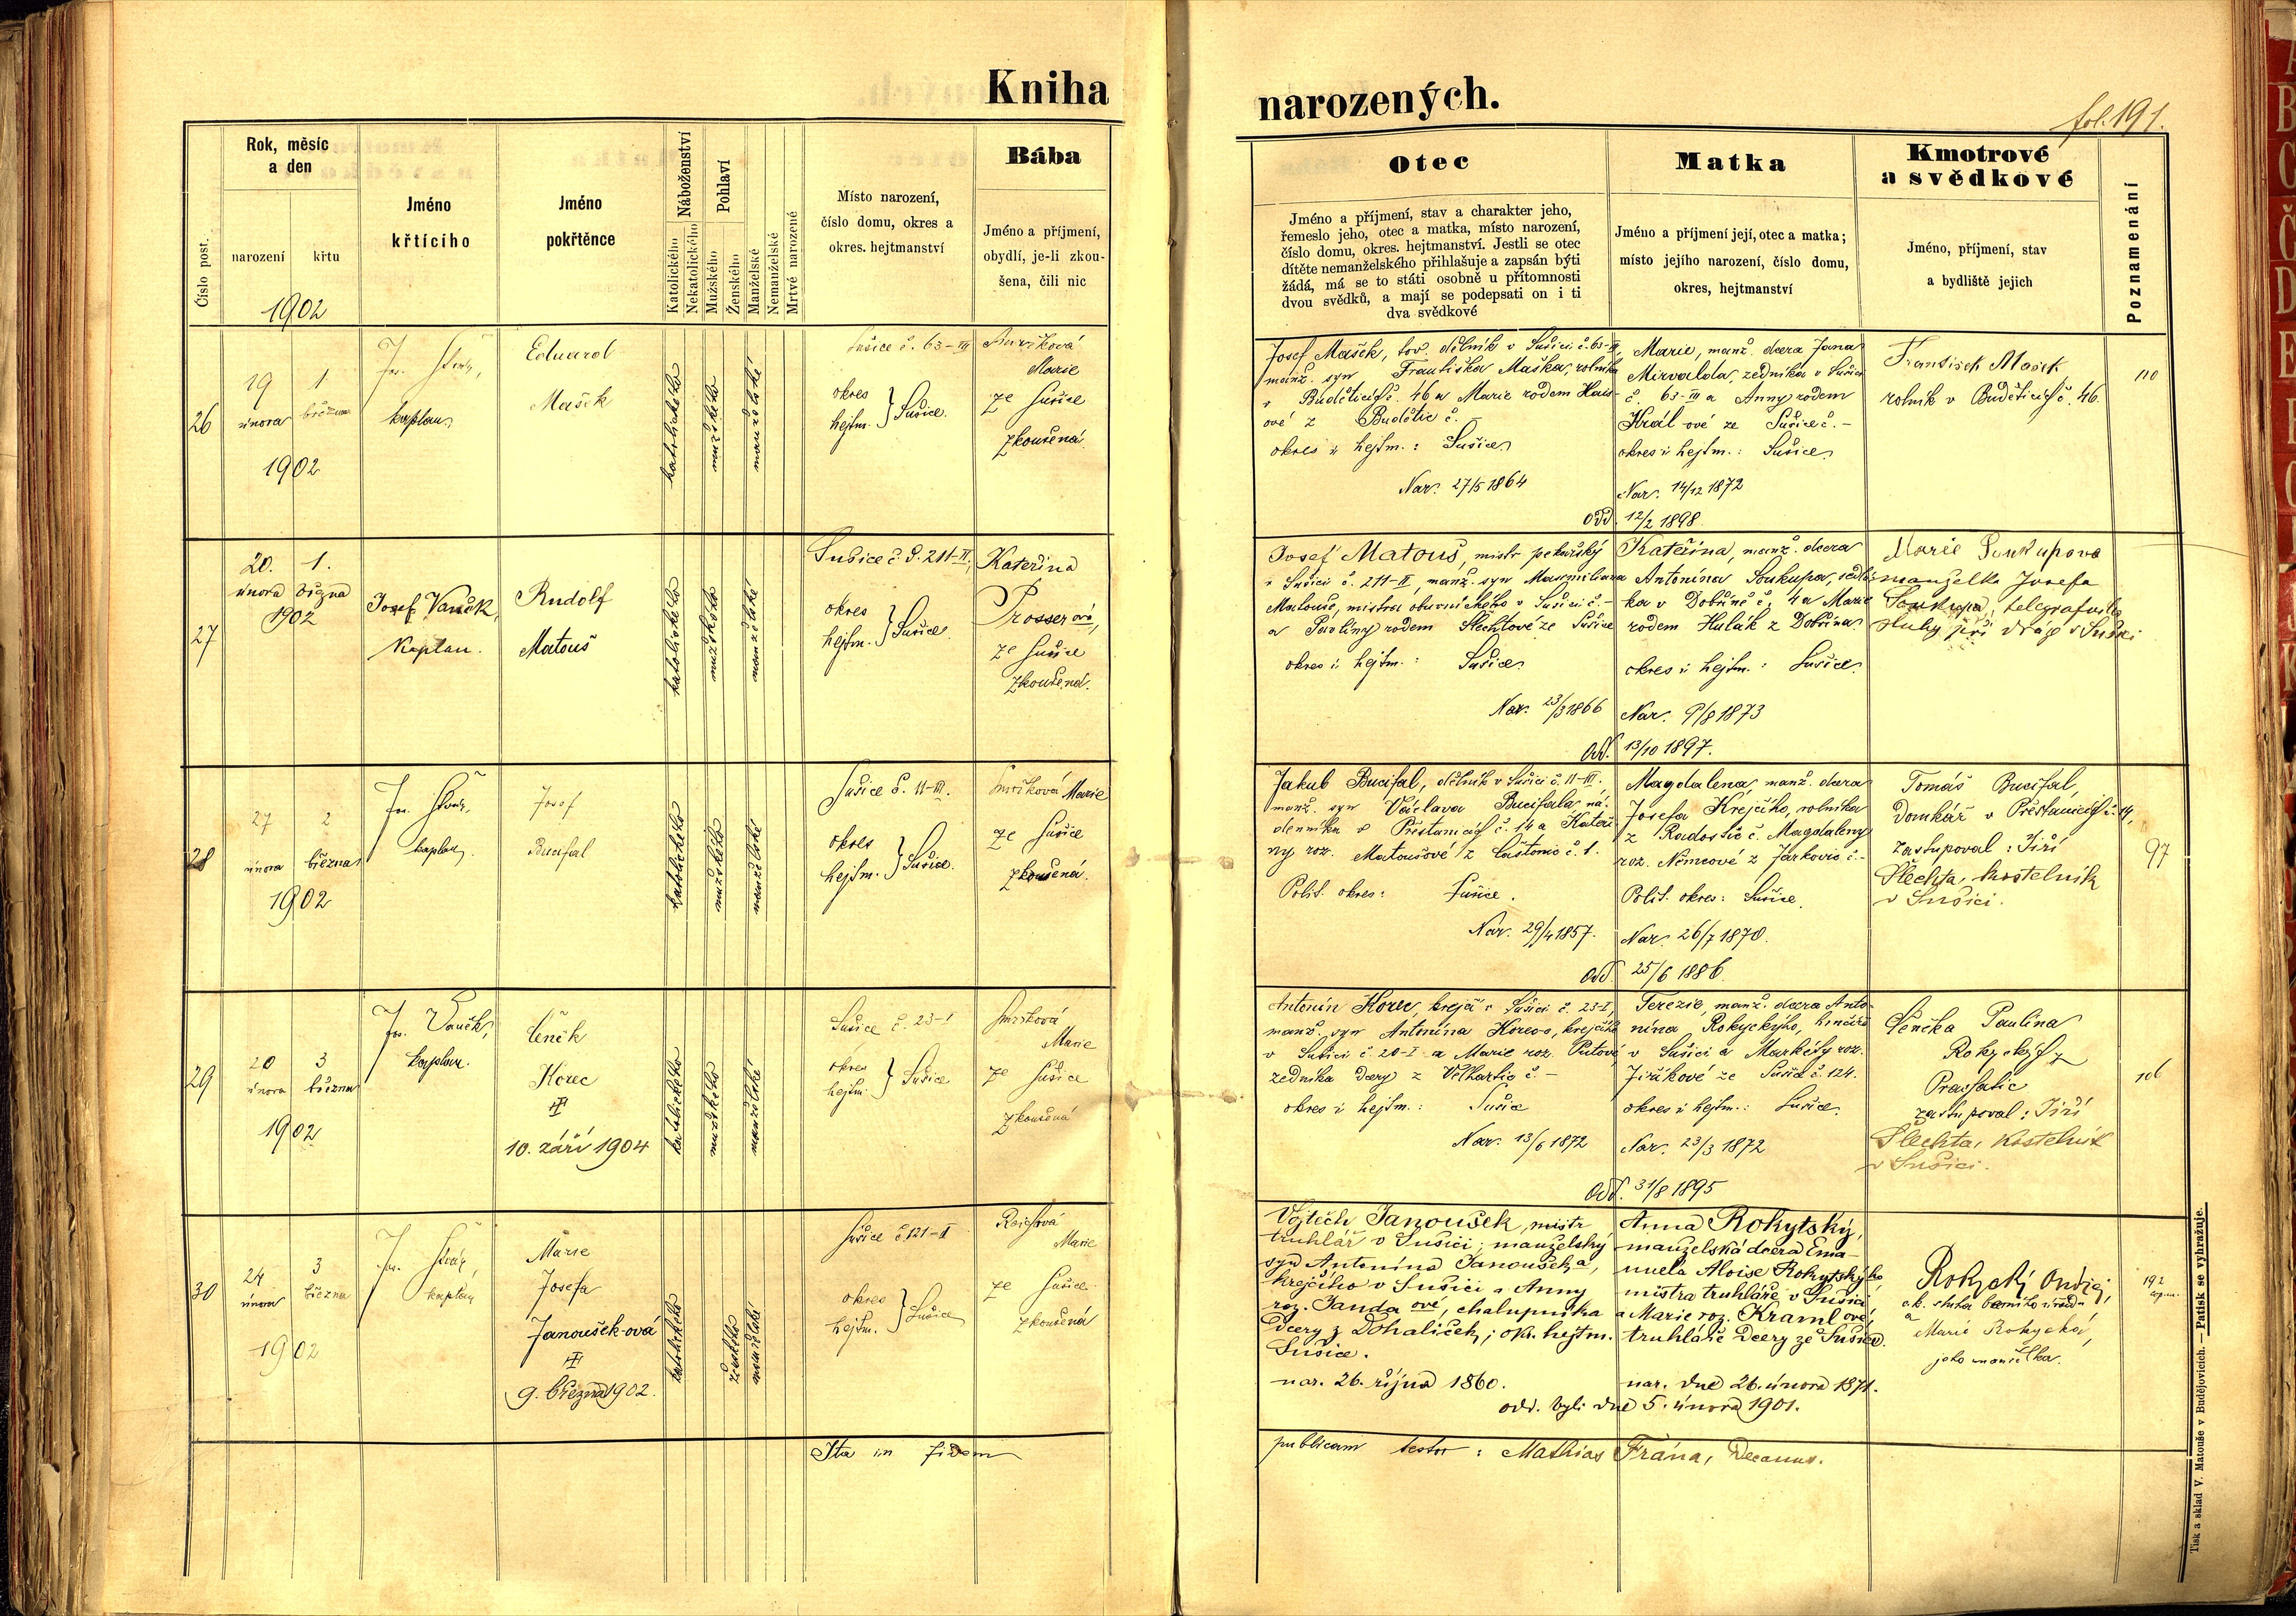 Kniha
narozených.
fol. 191.
Číslo post.
Rok, měsíc
a den
narození
křtu
1902
Jméno
křtícího
Jméno
pokřtěnce
Náboženství
Katolického
Nekatolického
Pohlaví
Mužského
Ženského
Manželské
Nemanželské
Mrtvě narozené
Místo narození,
číslo domu, okres a
okres. hejtmanství
Bába
Jméno a příjmení,
obydlí, je-li zkou-
šena, čili nic
Otec
Jméno a příjmení, stav a charakter jeho,
řemeslo jeho, otec a matka, místo narození,
číslo domu, okres. hejtmanství. Jestli se otec
dítěte nemanželského přihlašuje a zapsán býti
žádá, má se to státi osobně u přítomnosti
dvou svědků, a mají se podepsati on i ti
dva svědkové
Matka
Jméno a příjmení její, otec a matka;
místo jejího narození, číslo domu,
okres, hejtmanství
Kmotrové
a svědkové
Jméno, příjmení, stav
a bydliště jejich
Poznamenání
26
19 1.
února března
1902
kaplan.
Eduard
Mašek
katolického
mužského
manželské
Sušice č. 63-III
okres
hejtm. } Sušice.
Marie
ze Sušice
zkoušená
Josef Mašek, tov. dělník v Sušici č. 63-III,
manž. syn Františka Maška, rolníka
v Buděticích č. 46 a Marie rodem
ové z Budětic č. –
okres i hejtm.: Sušice
Nar. 27/5 1864
Marie, manž. dcera Jana
Mirvalda, zedníka v Sušici
č. 63-III a Anny rodem
Král-ové ze Sušice č. –
okres i hejtm.: Sušice
Nar. 14/12 1872
Odd. 12/2 1898.
František Mašek
rolník v Buděticích č. 46.
110
27
20. 1.
února března
1902
Josef Vaněk,
Kaplan.
Rudolf
Matouš
katolického
mužského
manželské
Sušice č. d. 211-II,
okres
hejtm. } Sušice
Kateřina
Prosserová,
ze Sušice
zkoušená.
Josef Matouš, mistr pekařský
v Sušici č. 211-II, manž. syn Maxmiliana
Matouše, mistra obuvnického v Sušici č. –
a Paolíny rodem Šlechtové ze Sušice
okres i hejtm.: Sušice
Nar. 23/3 1866
Kateřina, manž. dcera
Antonína Soukupa, sedlá-
ka v Dobříně č. 4 a Marie
rodem Hulák z Dobřína
okres i hejtm.: Sušice.
Nar. 9/8 1873
Odd. 13/10 1897.
Marie Soukupova
manželka Josefa
Soukupa, telegrafního
sluhy při dráze v Sušici
28
27 2
února března
1902
kaplan,
Josef
Bucifal
katolického
mužského
manželské
Sušice č. 11-III.
okres
hejtm. } Sušice.
Smrčková Marie
ze Sušice
zkoušená.
Jakub Bucifal, dělník v Sušici č. 11-III.
manž. syn Václava Bucifala ná-
denníka v Přestanicích č. 14 a Kateři-
ny roz. Matoušové z Častonic č. 1.
Polit. okres: Sušice.
Nar. 29/4 1857.
Magdalena, manž. dcera
Josefa Krejčího, rolníka
z Radostic č. Magdaleny
roz. Němcové z Jarkovic č. –
Polit. okres: Sušice.
Nar. 26/7 1870.
Odd. 25/6 1886.
Tomáš Bucifal,
Domkář v Přestanicích č. 14,
zastupoval: Jiří
Šlechta, kostelník
v Sušici.
97
29
20 3
února března
1902
Jos. Vaněk,
kaplan.
Čeněk
Horec
10. září 1904
katolického
mužského
manželské
Sušice č. 23-I
okres
hejtm. } Sušice
Smrčková
Marie
ze Sušice
zkoušená
Antonín Horec, krejčí v Sušici č. 23-I,
manž. syn Antonína Horec-a, krejčího
v Sušici č. 20-I a Marie roz. Putové
zedníka dcery z Velhartic č. –
okres i hejtm.: Sušice
Nar. 13/6 1872
Terezie, manž. dcera Anto-
nína Rokyckýho, hrnčíře
v Sušici a Markéty roz.
Jiříkové ze Sušice č. 124.
okres i hejtm.: Sušice.
Nar. 23/3 1872
Odd. 31/8 1895
Čeněka Paulina
Rokyckých z
Prachatic
zastupoval: Jiří
Šlechta, kostelník
v Sušici.
106
30
24 3
února března
1902
kaplan
Marie
Josefa
Janoušek-ová
9. března 1902.
katolického
ženského
manželské
Sušice č. 121-II
okres
hejtm. } Sušice
Marie
ze Sušice
zkoušená
Vojtěch Janoušek, mistr
truhlář v Sušici; manželský
syn Antonína Janoušek a,
krejčího v Sušici a Anny
roz. Janda ové, chalupníka
dcery z Dohaliček; okr. hejtm.
Sušice.
nar. 26. října 1860.
Anna Rokytský,
manželská dcera Ema-
nuela Aloise Rokytskýho,
mistra truhláře v Sušici
a Marie roz. Kraml ové,
truhláře dcery ze Sušice.
nar. dne 26. února 1871.
odd. byli dne 5. února 1901.
Rokycký Ondřej,
c.k. sluha berního úřadu
a
Marie Rokycká,
jeho manželka.
192
Ita in fidem
publicam testor: Mathias Frána, Decanus.
Tisk a sklad V. Matouše v Budějovicích. — Patisk se vyhražuje.